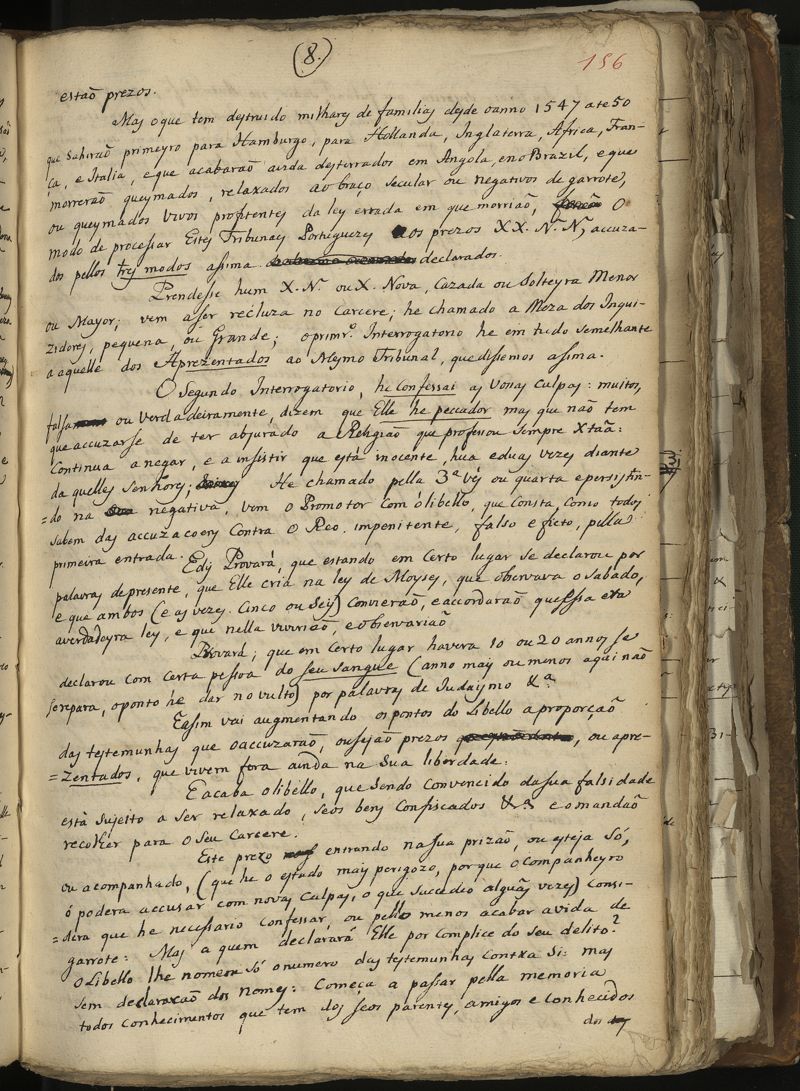 (8.)
156
estaõ prezos.
Mas o que tem destruido milhares de familias desde o anno 1547 ate 50
que sahiraõ primeyro para Hamburgo, para Hollanda, Inglaterra, Africa, Fran-
ça, e Italia, e que acabaraõ ainda desterrados em Angola, e no Brazil, e que
morreraõ queymados, relaxados ao braço secular ou negativos de garrote,
ou queymados vivos profitentes da ley errada em que morriaõ, O
modo de processar Estes Tribunaes Portuguezes aos prezos XX. Nˢ. Nˢ, accuza-
dos pellos tres modos assima declarados.
Prendesse hum X. Nº. ou X. Nova, Cazada ou Solteyra Menor
ou Mayor; vem a ser recluza no Carcere; he chamado a Meza dos Inqui-
zidores, pequena, ou Grande; o primrº. Interrogatorio he em tudo semelhante
a aquelle dos Aprezentados ao Mesmo Tribunal, que dissemos assima.
O Segundo Interrogatorio, he Confessai as Vossas Culpas: muitos,
falsa ou Verdadeiramente, dizem que Elle he peccador mas que naõ tem
que accuzarse de ter abjurado a Religiaõ que professou sempre Xtaã:
Continua a negar, e a insistir que està inocente, hũa e duas vezes diante
da quelles Senhores; He chamado pella 3ª vês ou quarta e persistin-
=do na negativa, vem o Promotor Com o libello, que Consta, Como todos
sabem das accuzacoens Contra O Reo. impenitente, falso e ficto, pella
primeira entrada. Edis Provará, que estando em Certo lugar se declarou por
palavras de presente, que Elle cria na ley de Moyses, que observava o sabado,
e que ambos (e as vezes Cinco ou Seis) Convieraõ, e accordaraõ que Essa era
a verdadeyra ley, e que nella viviriaõ, e observariaõ
Provará; que em Certo lugar havera 10 ou 20 annos se
declarou com Certa pessoa do seu sangue (anno mais ou menos aqui naõ
se repara, o ponto he dar no vulto) por palavras de Judaismo &ª.
E assim vai augmentando os pontos do Libello a proporçaõ
das testemunhas que o accuzaraõ, ou sejaõ prezos, ou apre-
=zentados, que vivem fora ainda na sua liberdade:
E acaba o libello, que sendo Convencido da sua falsidade
està sujeito a ser relaxado, seos bens Confiscados &ª e o mandaõ
recolher para o Seu Carcere.
Este prezo entrando na sua prizaõ, ou esteja só,
ou acompanhado, (que he o estado mais perigozo, porque o Companheyro
ó podera accusar com novas Culpas, o que succedeo alguãs vezes) Consi-
=dera que he necessario Confessar, ou pello menos acabar a vida de
garrote: Mas a quem declarará Elle por Complice do seu delito?
O Libello lhe nomeou só o numero das testemunhas Contra Si: mas
sem declaraxaõ dos nomes: Começa a passar pella memoria
todos Conhecimentos que tem dos seos parentes, amigos e Conhecidos
dos